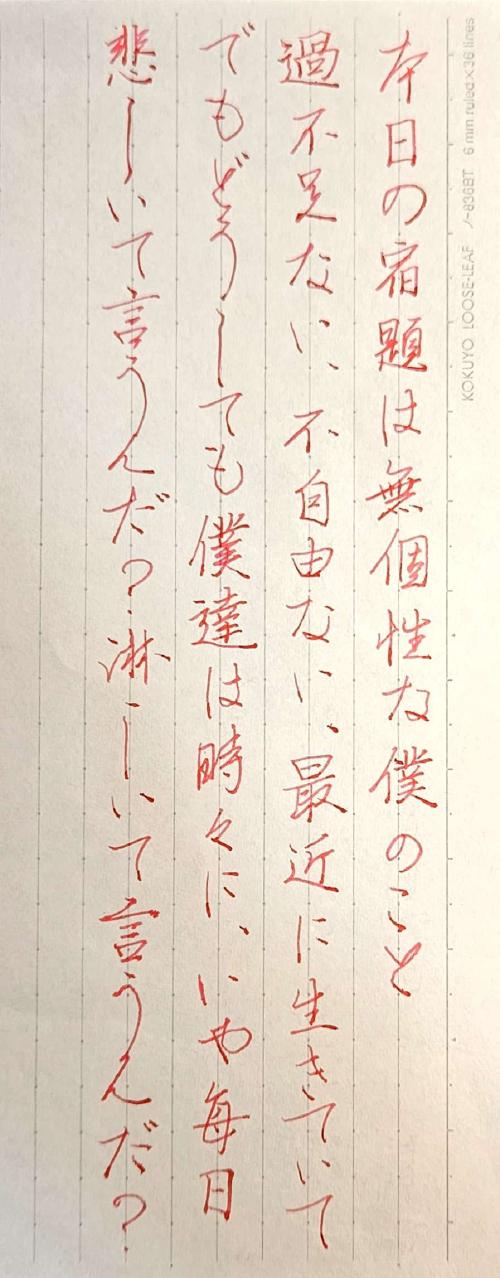 本日の宿題は無個性な僕のこと
過不足ない、不自由ない、最近に生きていて
でもどうしても僕達は時々に、いや毎日
悲しいって言うんだ？淋しいって言うんだ？
KOKUYO LOOSE-LEAF ノ-836BT 6 mm ruled×36 lines